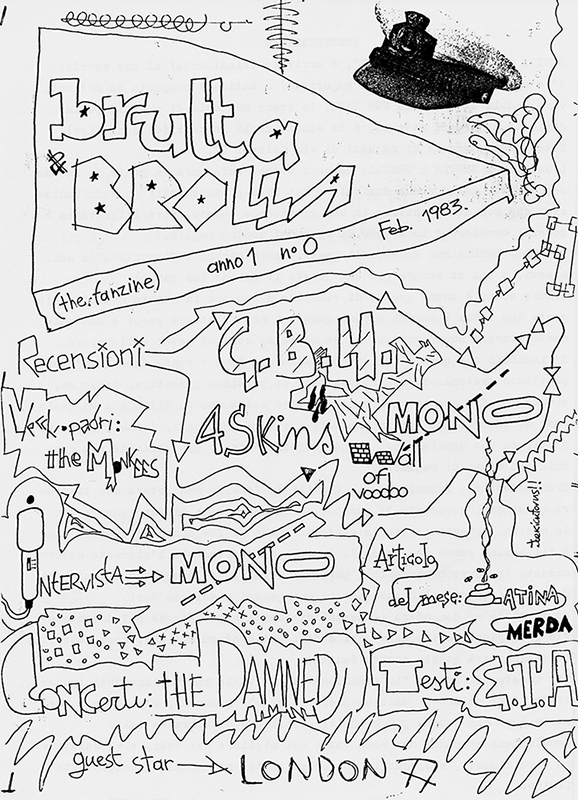 brutta
BROLLA
(the:fanzine)
anno 1 n° 0
Feb. 1983.
Recensioni
G.B.H.
4Skins
MONO
Wall
of
voodoo
Veck. padri:
the Monkees
INTERVISTA
MONO
Articolo
del mese: LATINA
MERDA
Concerti: THE DAMNED
Testi: E.T.A
guest star → LONDON 77